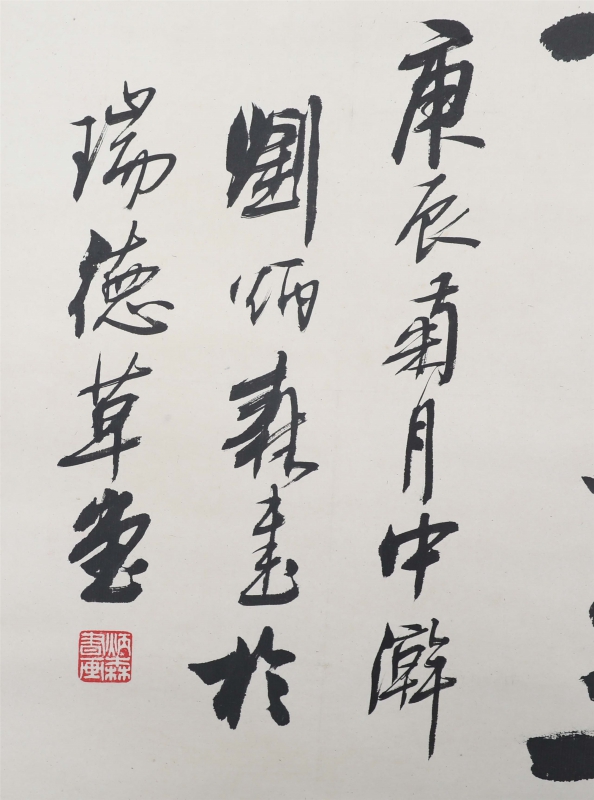 庚辰菊月中澣
劉炳森書於
瑞德草堂
炳森書画